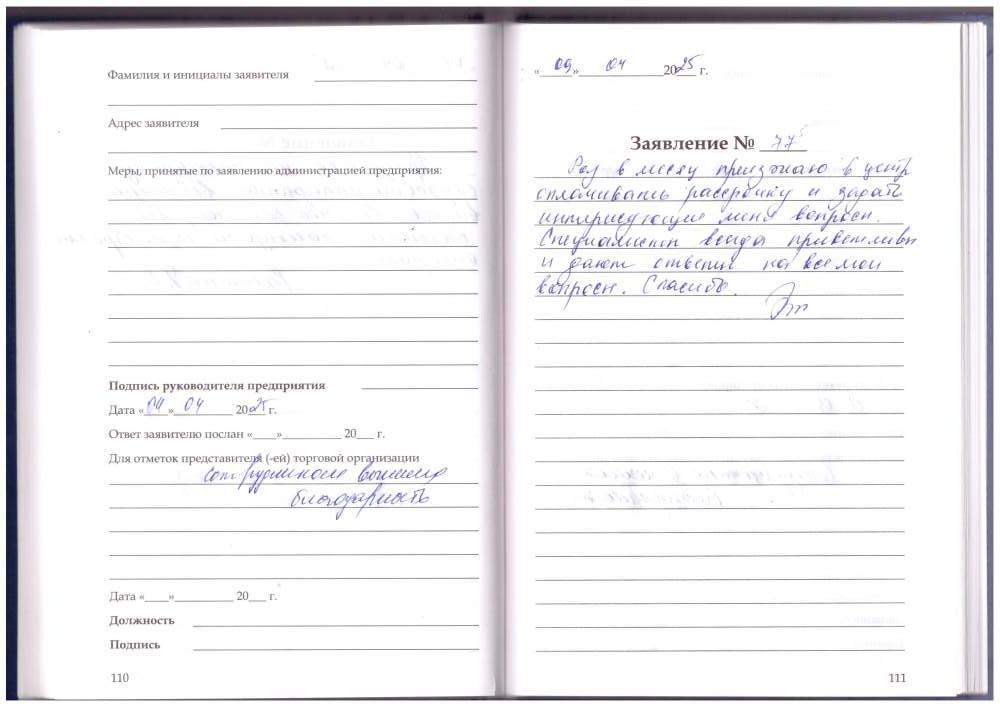 Фамилия и инициалы заявителя
Адрес заявителя
Меры, принятые по заявлению администрацией предприятия:
Подпись руководителя предприятия
Дата «04» 04 2025 г.
Ответ заявителю послан «___»__________ 20___ г.
Для отметок представителя (-ей) торговой организации
сотрудникам
благодарность
Дата «____»__________ 20___ г.
Должность
Подпись
110
«09» 04 2025 г.
Заявление № 77
Раз в месяц приезжаю в центр
оплачивать рассрочку и задать
интересующие меня вопросы.
Специалисты всегда приветливы
и дают ответы на все мои
вопросы. Спасибо.
111